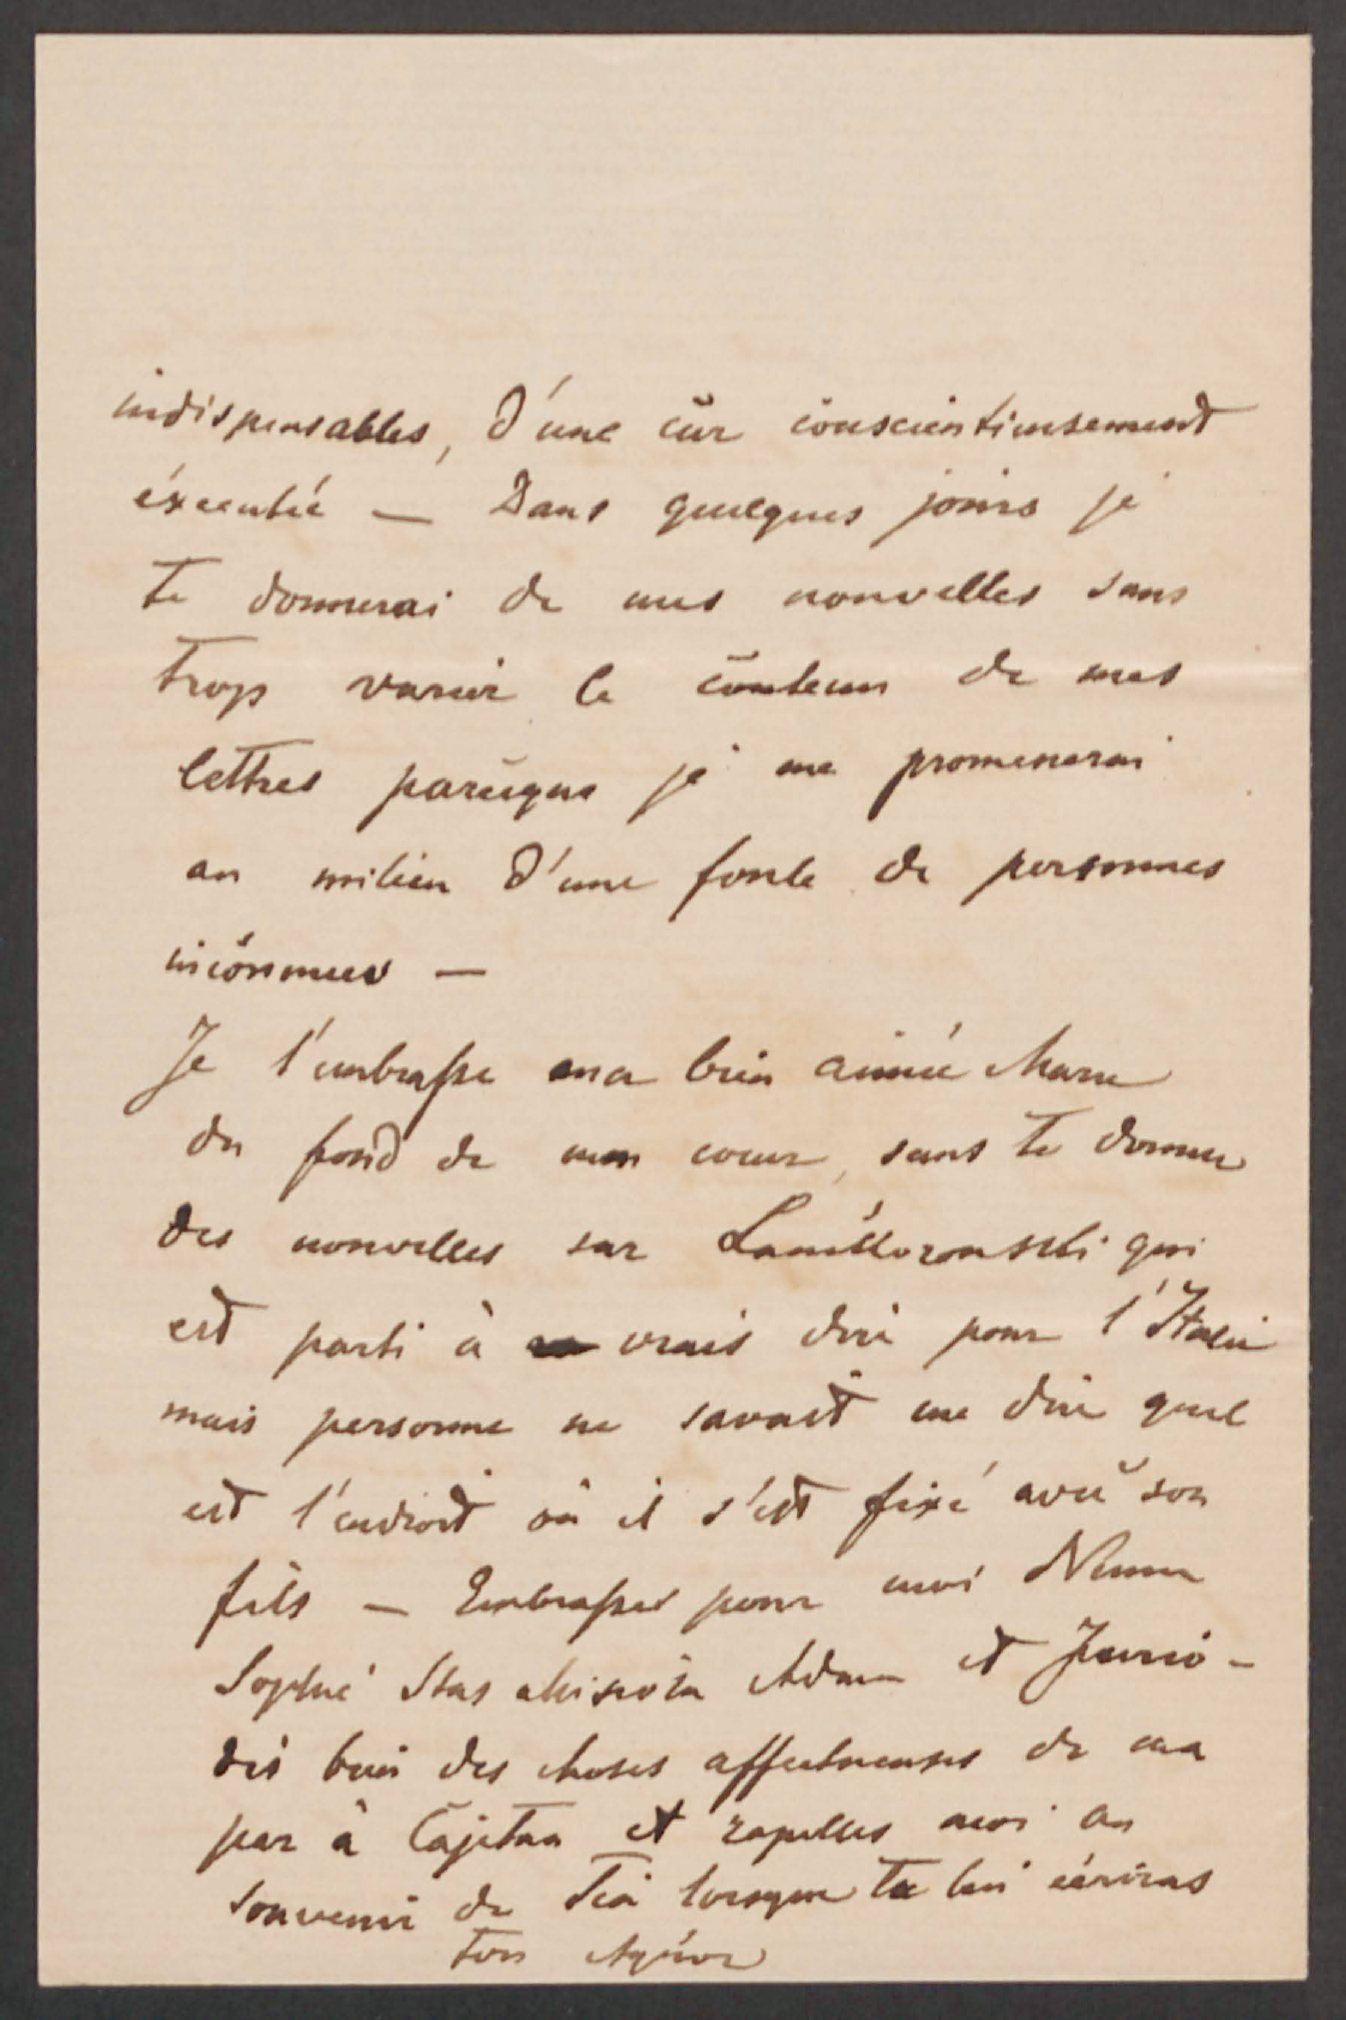 indispensables, d'une cür consciencieusement
éxecutée — Dans quelques jours je
te donnerai de mes nouvelles sans
trop varier le contenu de mes
lettres parceque je me promenerai
au milieu d'une foule de personnes
inconnues —
Je t'embrasse ma bien aimée Marie
du fond de mon coeur, sans te donner
des nouvelles sur Lanckoronski qui
est parti à vrais dire pour l'Italie
mais personne ne savait me dire quel
est l'endroit où il s'est fixé avec son
fils — Embrasses pour moi
Sophie Stas Adam et
dis bien des choses affectueuses de ma
par à Cajetan et rapelles moi au
souvenir de lorsque tu lui écriras
ton Agénor